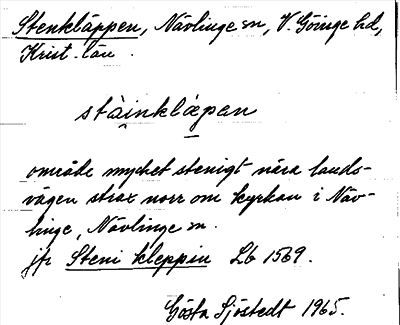 Stenkläppen, Nävlinge sn, V. Göinge hd,
Krist. län.
stàinklæpen
område mycket stenigt nära lands-
vägen strax norr om kyrkan i Näv-
linge, Nävlinge sn.
jfr Steni kleppin Lb 1569.
Gösta Sjöstedt 1965.